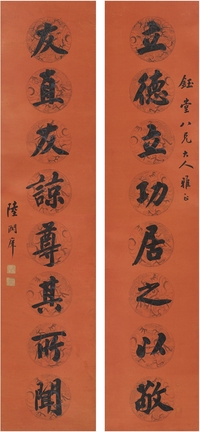 鈺堂八兄大人雅正
立德立功居之以敬
友直友諒尊其所聞
陸潤庠